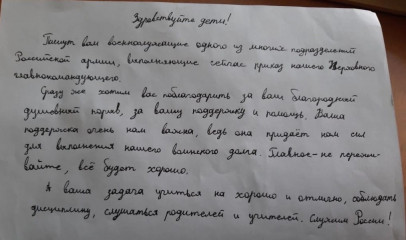 Здравствуйте дети!
Пишут вам военнослужащие одного из многих подразделений
Российской армии, выполняющие сейчас приказ нашего Верховного
главнокомандующего.
Сразу же хотим вас поблагодарить за ваш благородный
душевный порыв, за вашу поддержку и помощь. Ваша
поддержка очень нам важна, ведь она придаёт нам сил
для выполнения нашего воинского долга. Главное - не пережи-
вайте, всё будет хорошо.
А ваша задача учиться на хорошо и отлично, соблюдать
дисциплину, слушаться родителей и учителей. Служим России!